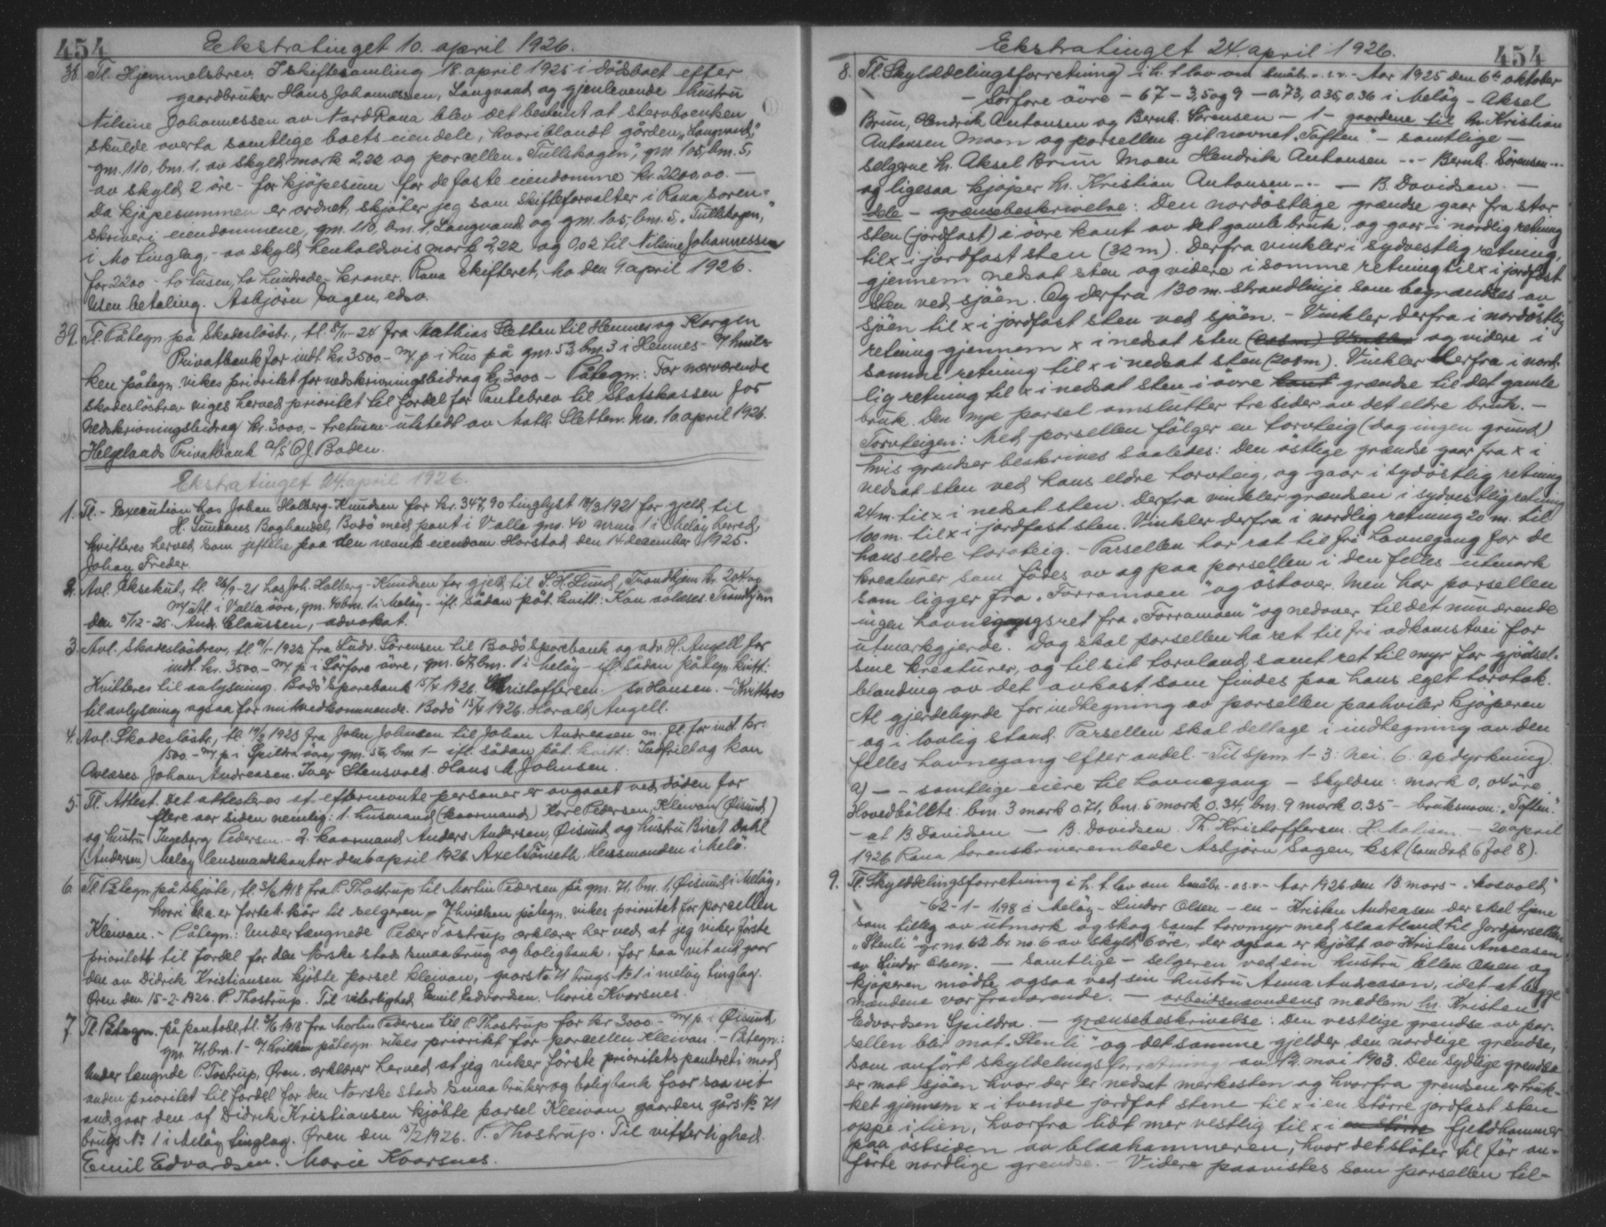 454
Ekstratinget 10. april 1926.
38. Tl. Hjemmelsbrev I skiftesamling 18. april 1925 i dödsboet efter
gaardbruker Hans Johannessen, Langvand og gjenlevende hustru
Nilsine Johannessen av Nord Rana blev det bestemt at stervboenken
skulde overta samtlige boets eiendele, hvoriblandt gården „Langvand,"
gnr. 110, bnr. 1. av skyld mark 2,22 og parcellen „Tullskogen", gnr. 105, bnr. 5,
av skyld 2 öre - for kjöpesum for de faste eiendomme kr. 2200.00. -
Da kjöpesummen er ordnet, skjöter jeg som skifteforvalter i Rana soren-
skriveri eiendommene, gnr. 110, bnr. 1, Langvand og gnr. 105, bnr. 5. „Tullskogen,"
i Mo tinglag, - av skyld henholdsvis mark 2,22 og 0,02 til Nilsine Johannessen
for 2200 - to tusen, to hundrede - kroner. Rana Skifteret, Mo den 9 april 1926.
Uten betaling. Asbjörn Sagen, edso.
39. Tl. Påtegn. på Skadeslöstr., tl. 5/11-24 fra Mathias Sletten til Hemnes og Korgen
Privatbank for indt. kr. 3500 - m/p. i hus på gnr. 53, bnr. 3 i Hemnes - % hvilken
ken påtegn. vikes prioritet for nedskrivningsbidrag kr. 3000 - Påtegn: For nærværende
skadeslösbrev viges herved prioritet til fordel for pantebrev til Statskassen for
Nedskrivningsbidrag kr. 3000. - tretusen - utstedt av Math. Sletten. Mo. 10 april 1926.
Helgelands Privatbank a/s O J Boden.
Ekstratinget 24 april 1926.
1. Tl. - Execution hos Johan Halberg-Knudsen for kr. 347,90 tinglyst 18/3 1921 for gjeld til
H. Sundens Boghandel, Bodö med pant i Valla gnr. 40 brnr 1 i Melöy hered,
kvitteres herved som ophævet paa den nevnte eiendom Harstad den 14 december 1925.
Johan Freder
2. Avl. Eksekut., tl. 26/9-21 hos Joh. Halberg-Knudsen for gjeld til S. H. Lund, Trondhjem kr. 204.00
m/utl. i Valla övre, gnr. 40 bnr. 1 i Melöy, - ifl. sådan påt. kvitt: Kan avlæses. Trondhjem
den 5/12-25. Andr. Claussen, advokat.
3. Avl. Skadeslösbrev, tl. 1922 fra Ludv. Sörensen til Bodö Sparebank og adv. H. Angell for
indt. kr. 3500 - m/p. i Sörfore övre, gnr. 67, bnr. 1 i Melöy - ifl. sådan påtegn. kvitt:
Kvitteres til avlysning. Bodö Sparebank 15/4 1926. Christoffersen. Hansen. - Kvitteres
til avlysning ogsaa for mit vedkommende. Bodö 15/4 1926. Harald Angell.
4. Avl. Skadeslöstr., tl. 1923 fra John Johnsen til Johan Andreasen m. fl. for ind. kr.
1500 - m/p. i Speildra övre, gnr. 56, bnr. 1 - ifl. sådan påt. kvitt: Indfriet og kan
Avlæses. Johan Andreasen. Iver Stensvard. Hans M. Johnsen.
5. Tl. Attest. Det attesteres at efternevnte personer er avgaaet ved döden for
flere aar siden nemlig: 1. husmand (kaarmand) Hove Pedersen, Kleivan (Öisund)
og hustru Ingeborg Pedersen - 2. kaarmand Anders Andersen, Öisund, og hustru Biret Dahl
(Andersen) Melöy lensmandskontor den 6 april 1926 Axel Tönseth, lensmanden i Melö.
6. Tl. Påtegn. på Skjöte, tl. 3/6 1918 fra P. Thostrup til Martin Pedersen på gnr. 71, bnr. 1, Öisund i Melöy,
hvori bl.a. er forbeh. kår til selgeren - % hvilken påtegn. vikes prioritet for parcellen
Kleivan. - Påtegn: Undertegnede Peder Tostrup erklærer her ved at jeg viker förste
prioritet til fordel for den Norske stads smaabrug og boligbank, for saa vit and gaar
den av Didrik Kristiansen kjöbte parsel kleivan, gaars No 71 brugs No 1 i melöy tinglag.
Ören den 15-2-1926. P. Thostrup. Til viterlighed Emil Edvardsen. Marie Kvarsnes.
7 Tl. Påtegn. på pantobl. tl. 3/6 1918 fra Martin Pedersen til P. Thostrup for kr. 3000 - m/p. i Öisund
gnr. 71, bnr. 1 - % hvilken påtegn. vikes prioritet for parcellen Kleivan. - Påtegn:
Under tegnde P. Tostrup, Ören. erklærer herved at jeg viker förste prioritets panteret i mod
anden prioritet til fordel for den Norske stads smaa bruker og boligbank foor saa vit
and, gaar den af Didrik Kristiansen kjöbte parsel Kleivan gaarden gårs No 71
brugs No 1 i Melöy tinglag. Ören den 15/2 1926. P. Thostrup. Til vitterlighed.
Emil Edvardsen. Marie Kvarsnes.
454
Ekstratinget 24. april 1926.
8. Tl. Skylddelingsforretning i h. t. lov om småb. - s. v. - Aar 1925 den 6te oktober
- Sörfore övre - 67 - 3,5 og 9 - 0.73, 0.35, 0.36 i Melöy - Aksel
Brun, Hendrik Antonsen og Bernh. Sörensen - 1 - gaardene til hr. Kristian
Antonsen Moen og parsellen git navnet „Toften" - samtlige -
selgerne hr. Aksel Brun Moen Hendrik Antonsen - - - Bernh. Sörensen - -
og ligesaa kjöper hr. Kristian Antonsen - - - B. Davidsen. -
dele - grænsebeskrivelse: Den nordöstlige grændse gaar fra stor
sten (jordfast) i övre kant av det gamle bruk, og gaar i nordlig retning
til x i jordfast sten (32 m). Derfra vinkler i sydvestlig retning,
gjennem nedsat sten og videre i samme retning til x i jordfast
sten ved sjöen. Og derfra 130 m. strandlinje som begrændses av
sjöen til x i jordfast sten ved sjöen. - Vinkler derfra i nordöstlig
retning gjennem x i nedsat sten og videre i
samme retning til x i nedsat sten (208 m). Vinkler derfra i nord-
lig retning til x i nedsat sten i övre kant grændse til det gamle
bruk. Den nye parsel omslutter tre sider av det eldre bruk. -
Torvteigen: Med parsellen fölger en torvteig (dog ingen grund)
hvis grændser beskrives saaledes: Den östlige grændse gaar fra x i
nedsat sten ved hans eldre torvteig, og gaar i sydöstlig retning
24 m. til x i nedsat sten. Derfra vinkler grændsen i sydvestlig retning
100 m. til x i jordfast sten. Vinkler derfra i nordlig retning 20 m. til
hans eldre torvteig. - Parsellen har ret til fri havnegang for de
kreaturer som födes av og paa parsellen i den felles utmark
som ligger fra „Forramoen" og östover. Men har parsellen
ingen havnegangsret fra „Forramoen" og nedover til det nuværende
utmarksgjerde. Dog skal parsellen ha ret til fri adkomstvei for
sine kreaturer, og til sit torvland, samt ret til myr for gjödsel-
blanding av det avkast som findes paa hans eget torvtak.
Al gjerdebyrde for indhegning av parsellen paahviler kjöperen
- og i lovlig stand. Parsellen skal deltage i indhegning av den
felles havnegang efter andel. - Til spm. 1 - 3: Nei. 6. opdyrkning
a) - - samtlige eiere til havnegang - Skylden: mark 0,04 öre.
Hovedböllets: bnr. 3 mark 0.71, bnr. 5 mark 0.34, bnr. 9 mark 0.35 - bruksnavn: „Toften."
- at B Davidsen - B. Davidsen. Th. Kristoffersen. H. Madsen. - 20 april
1926 Rana Sorenskriverembede Asbjörn Sagen, kst. (Samdat. 6 fol 8).
9. Tl. Skylddelingsforretning i h. t. lov om småbr. - o. s. v. - Aar 1926 den 13 mars - „Kosvold,"
- 62 - 1 - 1.98 i Melöy - Lindor Olsen - en - Kristen Andreasen - der skal tjene
som tillæg av utmark og skog samt torvmyr med slaatland til jordparsellen
„Stenli" gr. no. 62 br. no. 6 av skyld 6 öre, der ogsaa er kjöbt av Kristen Andreasen
av Lindor Olsen. - Samtlige - selgeren ved sin hustru Ellen Olsen og
kjöperen mödte ogsaa ved sin hustru Anna Andreasen, idet at begge
mændene var fraværende. - arbeidsnævndens medlem hr. Kristen
Edvardsen Speildra - grænsebeskrivelse: Den vestlige grendse av par-
sellen blir mot „Stenli" og det samme gjelder den nordlige grendse,
som anfört skyldelingsforretning av 12 mai 1903. Den sydlige grendse
er mot sjöen hvor der er nedsat merkesten og hvorfra grendsen er truk-
ket gjennem x i tvende jordfat stene til x i en större jordfast sten
oppe i lien, hvorfra lidt mer vestlig til x i fjeldhammer
paa östsiden av blaahammeren, hvor det stöter til för an-
förte nordlige grendse. - Videre paavistes som parsellen til-